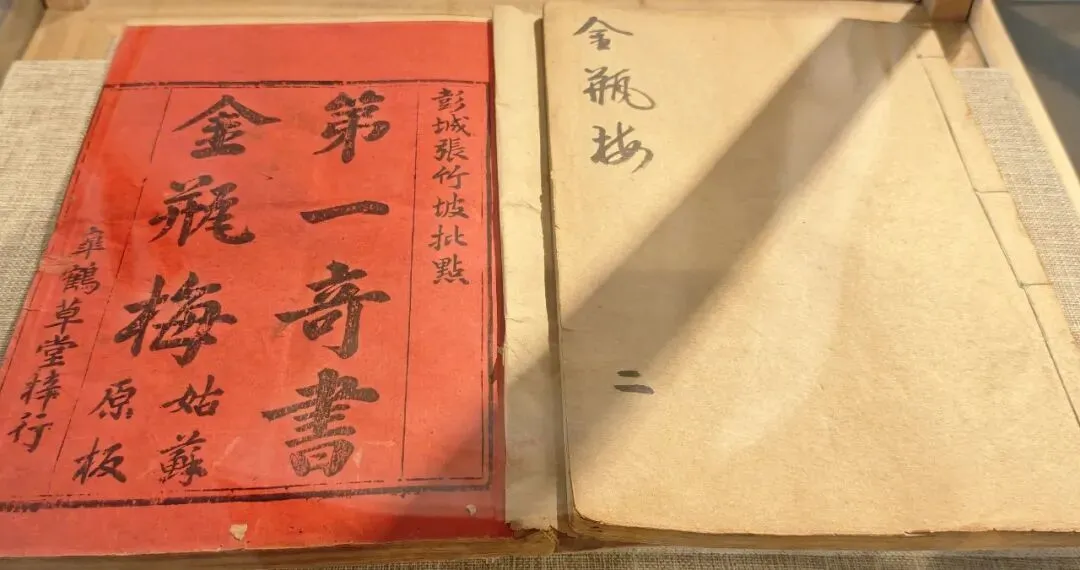 彭城張竹坡批點
第一奇書
金瓶梅
姑蘇
原板
皐鶴草堂梓行
金瓶梅
二